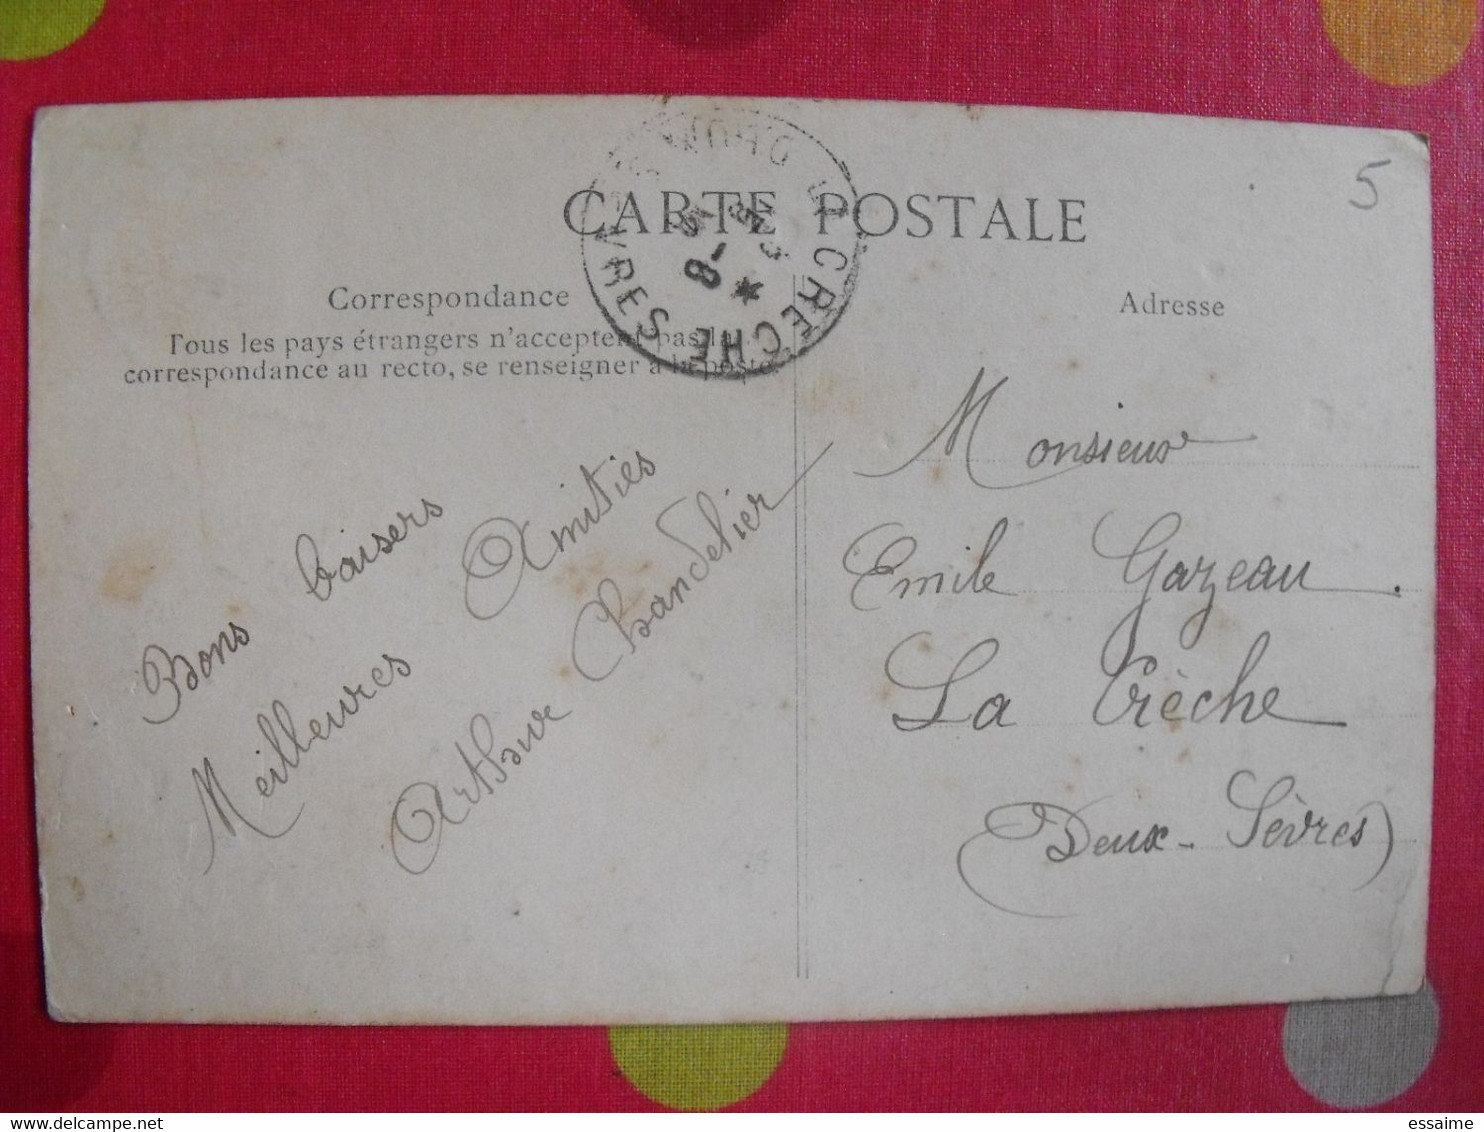 5
CARTE POSTALE
Correspondance
Tous les pays étrangers n'acceptent pas la
correspondance au recto, se renseigner à la poste
Adresse
CRECHE
Bons baisers
Meilleures Amitiés
Arthur Chandelier
Monsieur
Emile Gazeau.
La Crèche
(Deux-Sèvres)
delcampe.net
essaime